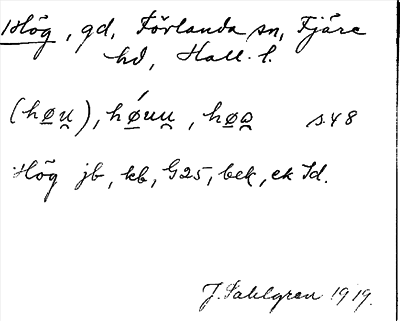 Hög, gd, Förlanda sn, Fjäre
hd, Hall. l.
(hø̲u̯), hǿ̲uu̯, hø̲a̯ s. 48
Hög jb, kb, G25, bek, ek Id.
J. Sahlgren 1919.